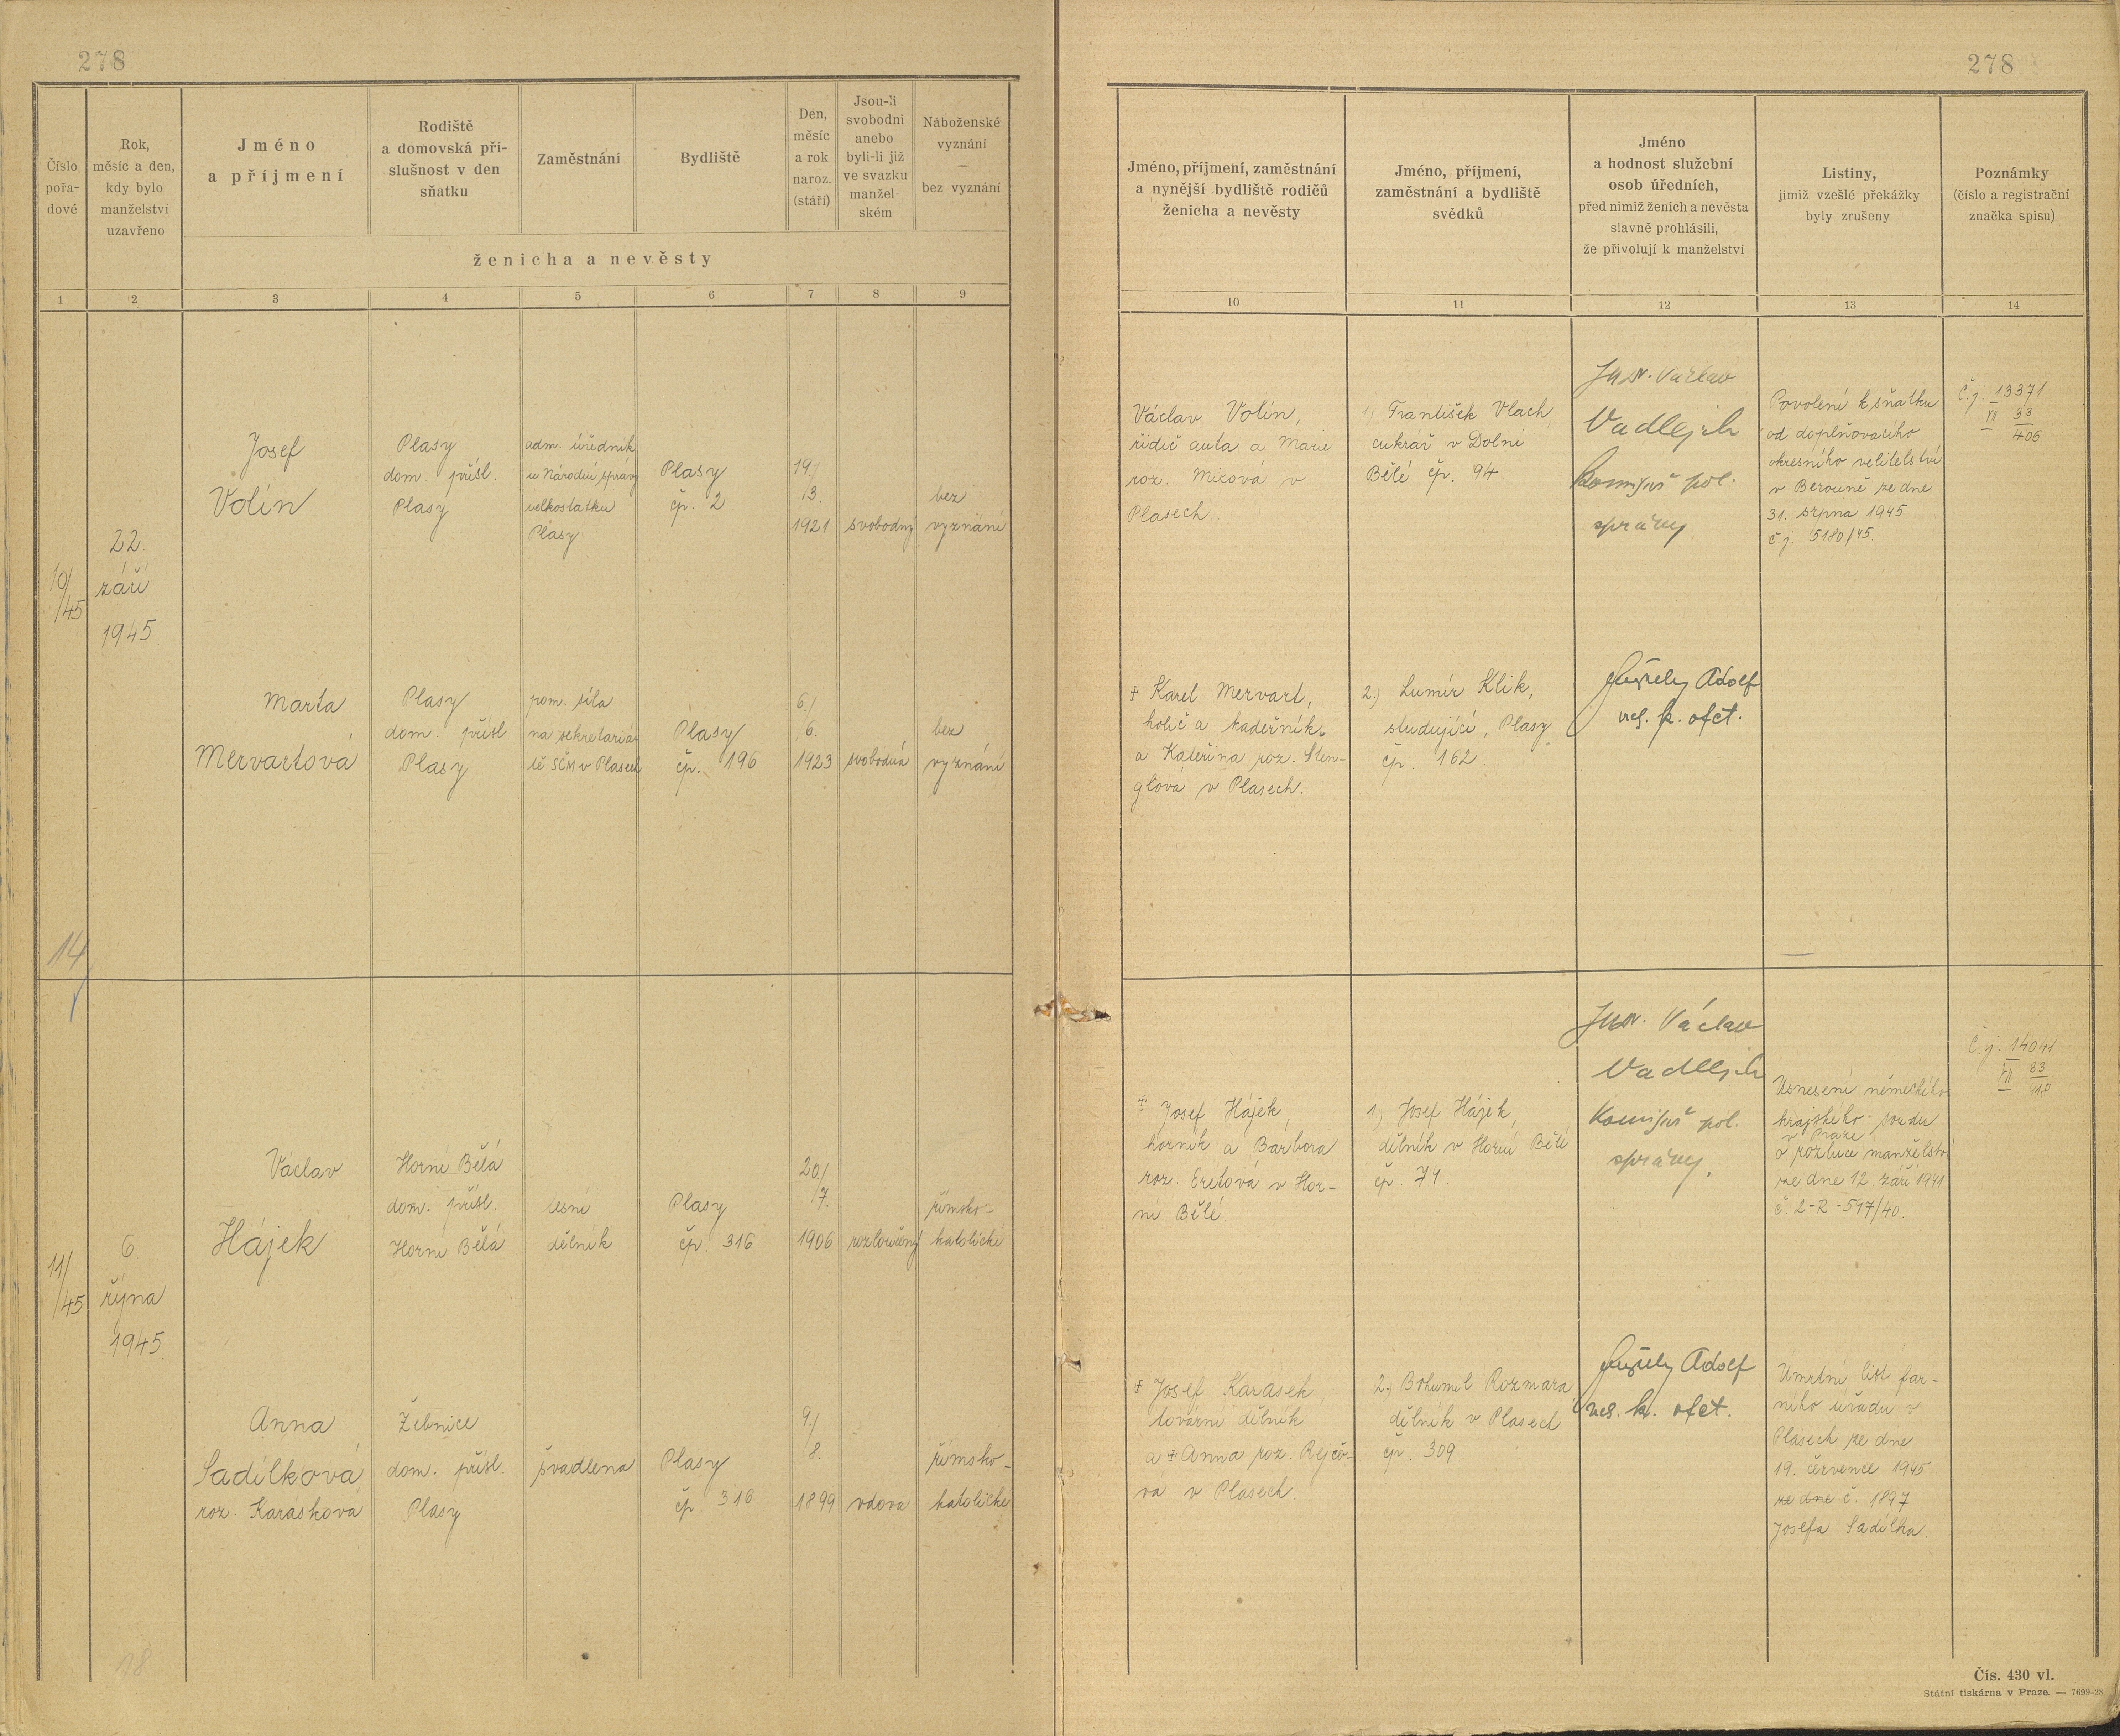 278
278
Číslo
pořa-
dové
Rok,
měsíc a den,
kdy bylo
manželství
uzavřeno
Jméno
a příjmení
Rodiště
a domovská pří-
slušnost v den
sňatku
Zaměstnání
Bydliště
Den,
měsíc
a rok
naroz.
(stáří)
Jsou-li
svobodni
anebo
byli-li již
ve svazku
manžel-
ském
Náboženské
vyznání
—
bez vyznání
ženicha a nevěsty
Jméno, příjmení, zaměstnání
a nynější bydliště rodičů
ženicha a nevěsty
Jméno, příjmení,
zaměstnání a bydliště
svědků
Jméno
a hodnost služební
osob úředních,
před nimiž ženich a nevěsta
slavně prohlásili,
že přivolují k manželství
Listiny,
jimiž vzešlé překážky
byly zrušeny
Poznámky
(číslo a registrační
značka spisu)
1 2 3 4 5 6 7 8 9 10 11 12 13 14
10/
/45
22.
září
1945.
Josef
Volín
Plasy
dom. přísl.
Plasy
adm. úředník
u Národní správy
velkostatku
Plasy
Plasy
čp. 2
19./
/3.
1921
svobodný
bez
vyznání
Václav Volín,
řidič auta a Marie
roz. Mixová v
Plasech.
1) František Vlach,
cukrář v Dolní
Bělé čp. 94.
JUDr. Václav
Vadlejch
Komisař pol.
správy
Povolení k sňatku
od doplňovacího
okresního velitelství
v Berouně ze dne
31. srpna 1945
č.j. 5180/45.
Č.j. 13371
VII 33
406
Marta
Mervartová
Plasy
dom. přísl.
Plasy
pom. síla
na sekretariá-
tě SČM v Plasech
Plasy
čp. 196
6./
6.
1923
svobodná
bez
vyznání
† Karel Mervart,
holič a kadeřník
a Kateřina roz. Sten-
glová v Plasech.
2.) Lumír Klik,
studující, Plasy
čp. 162.
Adolf
ofct.
14
11/
/45
6.
října
1945.
Václav
Hájek
Horní Bělá
dom. přísl.
Horní Bělá
lesní
dělník
Plasy
čp. 316
20./
/7.
1906
rozloučený
římsko-
katolické
† Josef Hájek,
horník a Barbora
roz. Eretová v Hor-
ní Bělé.
1.) Josef Hájek,
dělník v Horní Bělé
čp. 74.
JUDr. Václav
Vadlejch
Komisař pol.
správy.
Usnesení německého
krajského soudu
v Praze
o rozluce manželství
ze dne 12. září 1941
č. 2-R-597/40.
Č.j. 14041
VII 33
418
Anna
Sadílková
roz. Karásková
Žebnice
dom. přísl.
Plasy
švadlena
Plasy
čp. 316
9./
8.
1899
vdova
římsko-
katolické
† Josef Karásek,
tovární dělník
a † Anna roz. Rejčo-
vá v Plasech.
2.) Bohumil Rozmara
dělník v Plasech
čp. 309
Adolf
ofct.
Úmrtní list far-
ního úřadu v
Plasech ze dne
19. července 1945
ze dne č. 1897
Josefa Sadílka.
18
Čís. 430 vl.
Státní tiskárna v Praze. — 7699-28.